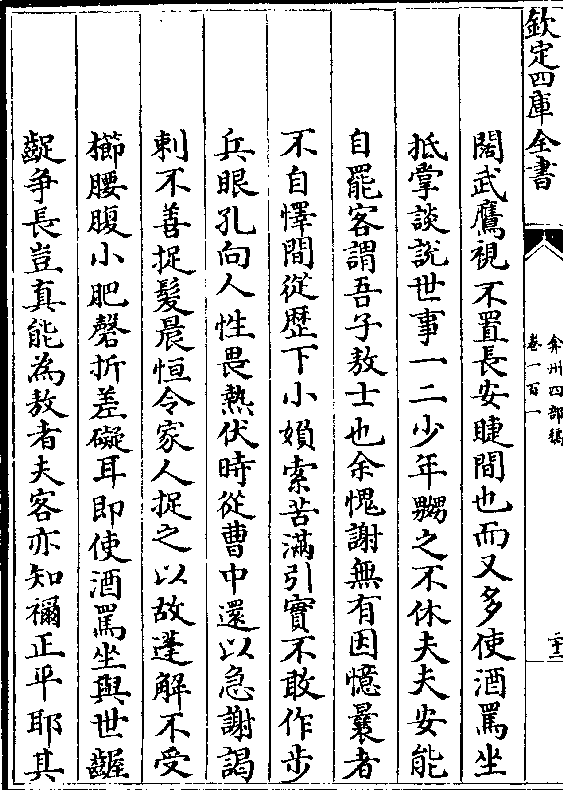 欽定四庫全書
弇州四部稿
卷一百一
二十二
闊武鷹視不置長安睫間也而又多使酒罵坐
抵掌談説世事一二少年嬲之不休夫夫安能
自罷客謂吾子敖士也余愧謝無有因憶曩者
不自懌間從歴下小娯索苦滿引實不敢作步
兵眼孔向人性畏熱伏時從曹中還以急謝謁
刺不善捉髮晨恒令家人捉之以故蓬解不受
櫛腰腹小肥磬折差礙耳即使酒罵坐與世齷
齪爭長豈真能為敖者夫客亦知禰正平耶其